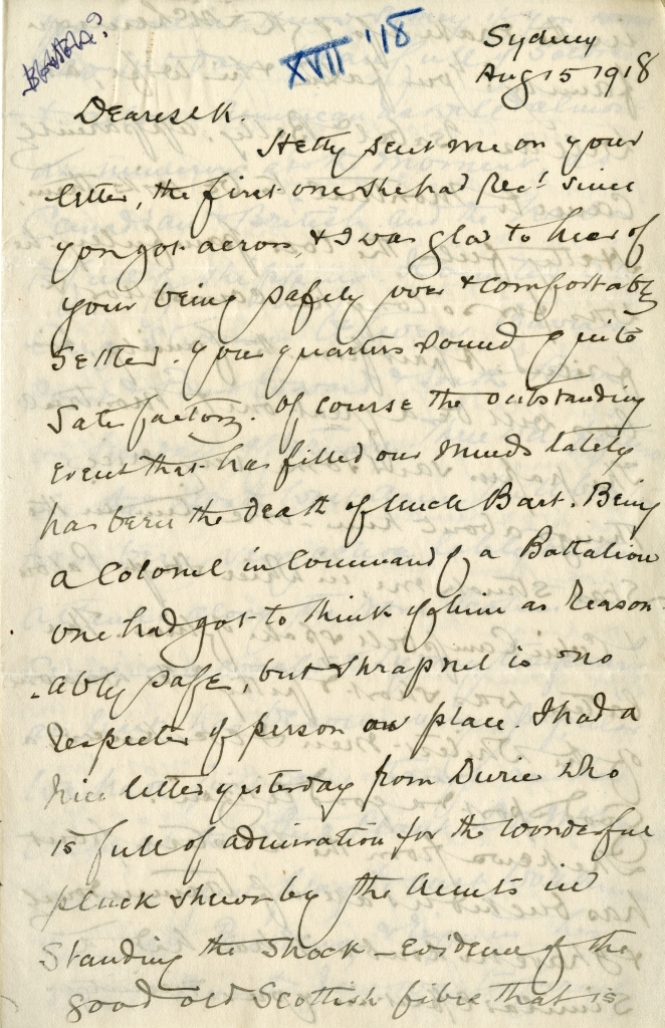 XVII '18
Sydney
Aug 15 1918
Dearest K.
Hetty sent me on your
letter, the first one she had Rec'd since
you got across, & I was glad to hear of
your being safely over & comfortably
settled. Your quarters sound quite
satisfactory. Of course the outstanding
event that has filled our minds lately
has been the death of Uncle Bart. Being
a Colonel in Command of a Battalion
one had got to think of him as Reason
-ably safe, but shrapnel is no
respecter of person or place. I had a
nice letter yesterday from Durie who
is full of admiration for the wonderful
pluck shewn by the Aunts in
standing the shock – Evidence of the
good old Scottish fibre that is